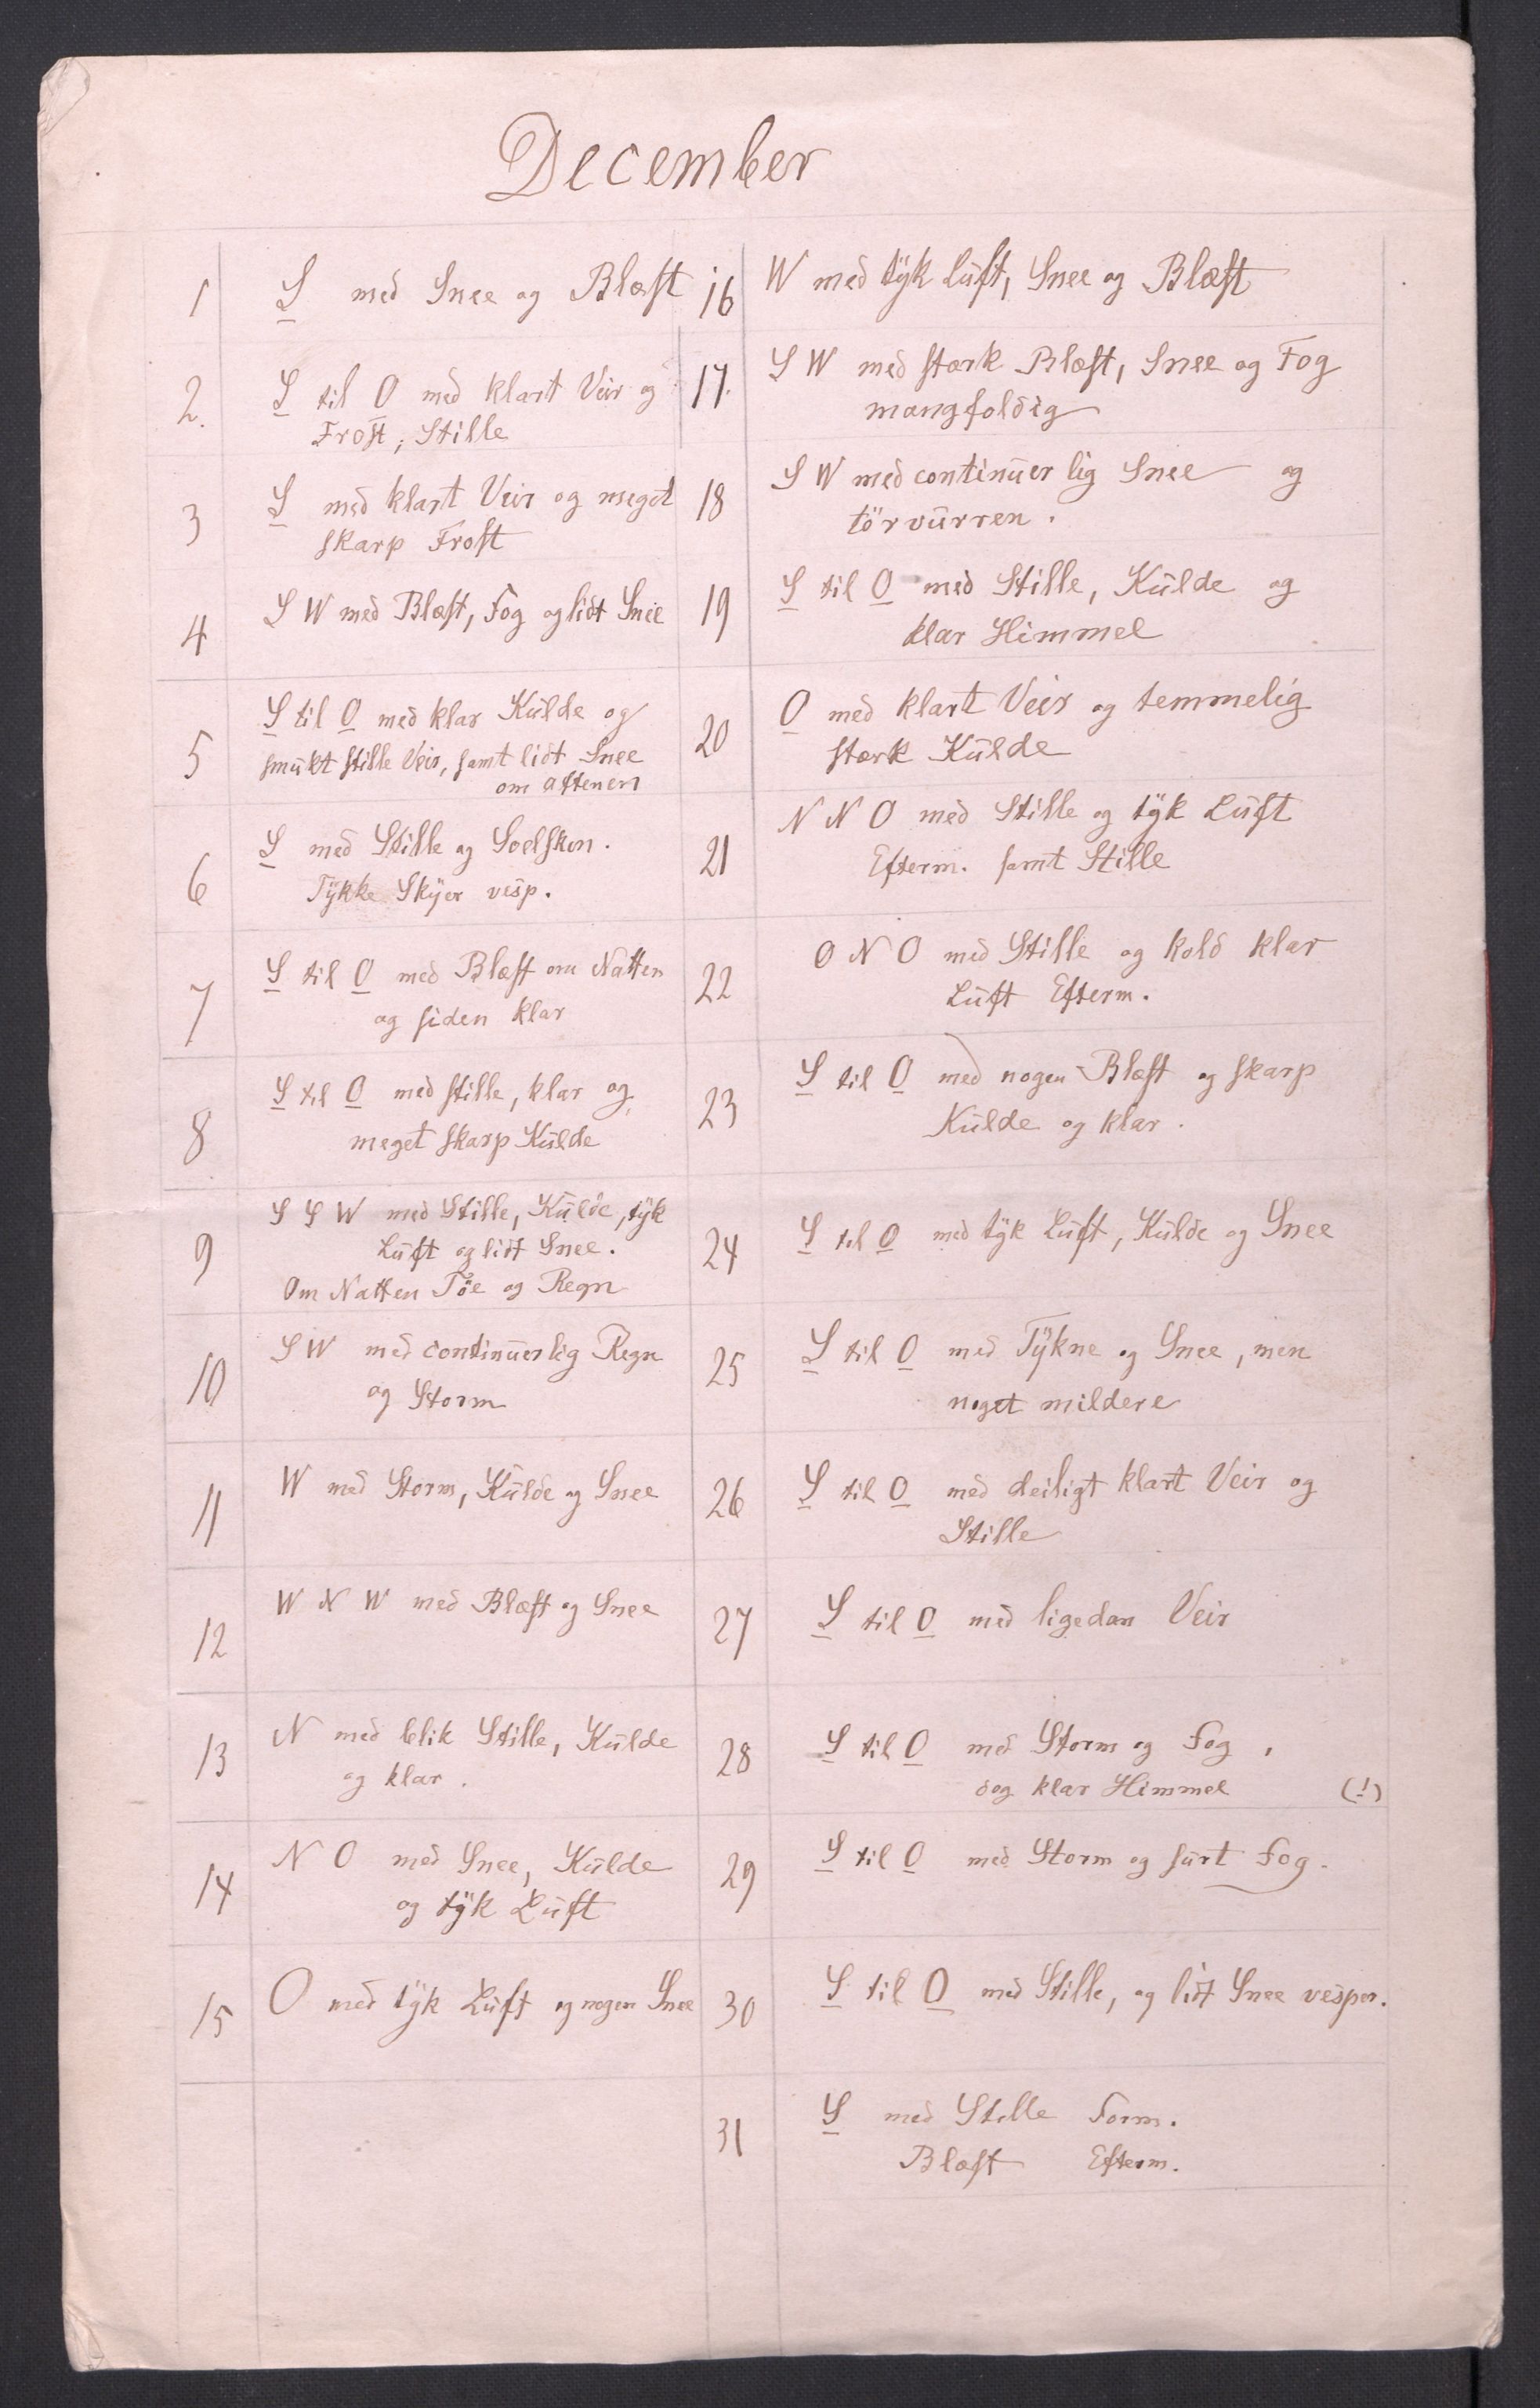 December
1 S med Snee og Blæst
2. S til O med klart Veir og
Frost; Stille
3 S med klart Veir og meget
skarp Frost
4 S W med Blæst, Fog og lidt Snee
5 S til O med klar Kulde og
smukt stille Veir, samt lidt Snee
om Aftenen
6 S med Stille og Soelskin.
Tykke Skyer vesp.
7 S til O med Blæst om Natten
og siden klar
8 S til O med stille, klar og
meget skarp Kulde
9 S S W med Stille, Kulde, tyk
Luft og lidt Snee.
Om Natten Töe og Regn
10 S W med continuerlig Regn
og Storm
11 W med Storm, Kulde og Snee
12 W N W med Blæst og Snee
13 N med blik Stille, Kulde
og klar.
14 N O med Snee, Kulde
og tyk Luft
15 O med tyk Luft og nogen Snee
16 W med tyk Luft, Snee og Blæst
17. S W med stærk Blæst, Snee og Fog
mangfoldig
18 S W med continuerlig Snee og
törvurren.
19 S til O med Stille, Kulde og
klar Himmel
20 O med klart Veir og temmelig
stærk Kulde
21 N N O med Stille og tyk Luft
Efterm. samt Stille
22 O N O med Stille og kold klar
Luft Efterm.
23 S til O med nogen Blæst og skarp
Kulde og klar.
24 S til O med tyk Luft, Kulde og Snee
25 S til O med Tykne og Snee, men
noget mildere
26 S til O med deiligt klart Veir og
Stille
27 S til O med ligedan Veir
28 S til O med Storm og Fog,
dog klar Himmel (!)
29 S til O med Storm og surt Fog.
30 S til O med Stille, og lidt Snee vesper.
31 S med Stille Form.
Blæst Efterm.